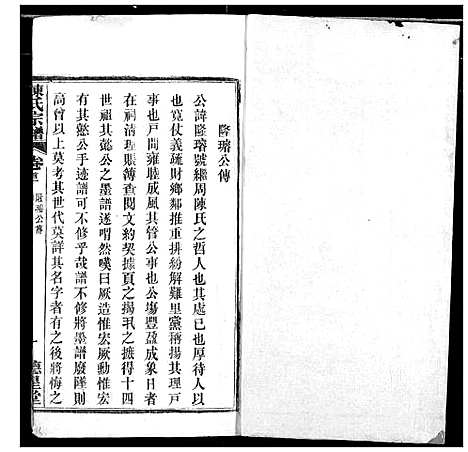 隆璿公傳
公諱隆璿號繼周陳氏之哲人也其處己也厚待人以
寬仗義疏財鄉鄰推重排紛解難里黨稱揚其理戶
事也戶間雍睦成風其管公事也公塲豐盈成象日者
在祠清理賬簿查閱文約契據頁之揚汎之摭得十四
世祖其懿公之墨譜遂喟然嘆曰厥造惟宏厥動惟宏
有其懿公手迹譜可不修乎哉譜不可修將墨譜廢墜則
高曾以上莫考其世代莫詳其名字者有之後將悔之
陳氏宗譜
卷
隆璿公傳
一
德星堂